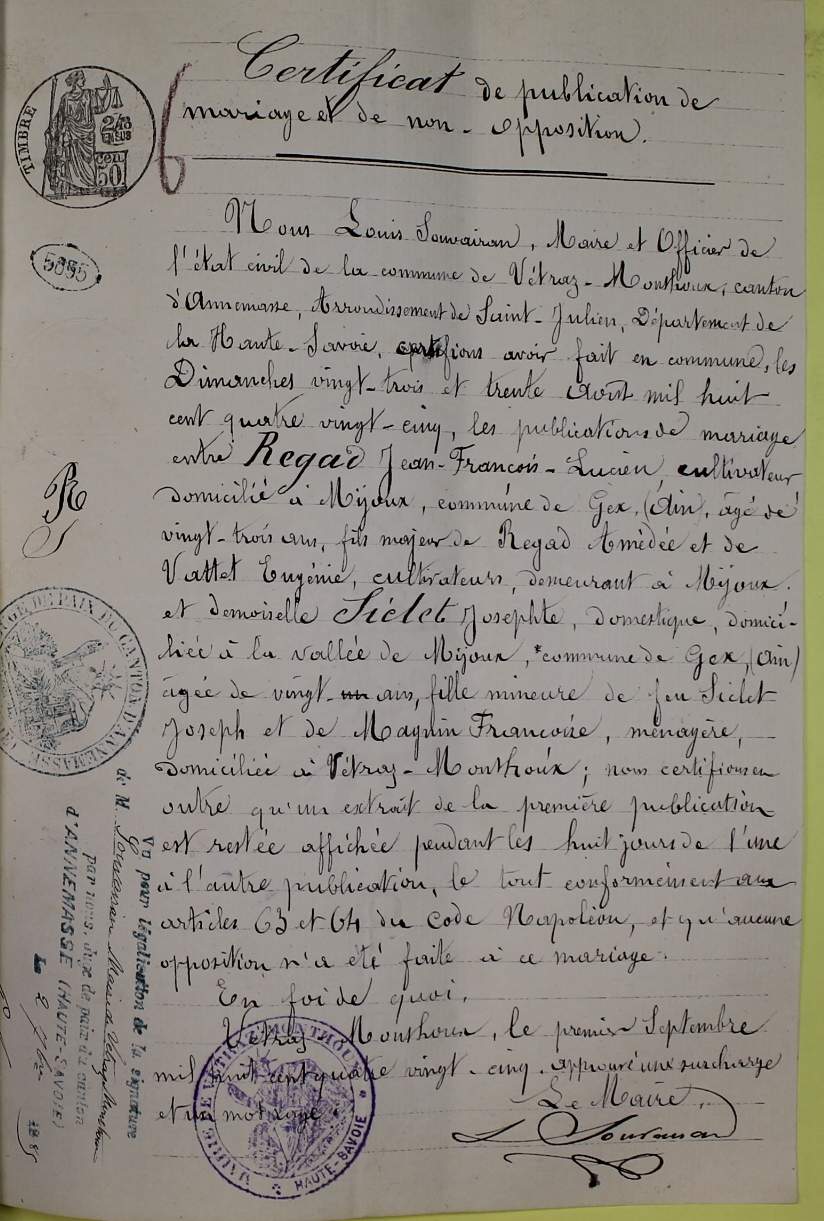 Certificat de publication de
mariage et de non-opposition.
TIMBRE
2/10
EN SUS
50 cen
5885
Nous Louis Souvairan, Maire et Officier de
l'état civil de la commune de Vétraz-Monthoux, canton
d'Annemasse, Arrondissement de Saint-Julien, Département de
la Haute-Savoie, certifions avoir fait en commune, les
Dimanches vingt-trois et trente Août mil huit
cent quatre vingt-cinq, les publications de mariage
entre Regad Jean-François-Lucien, cultivateur
domicilié à Mijoux, commune de Gex, (Ain), âgé de
vingt-trois ans, fils majeur de Regad Amédée et de
Vattet Eugénie, cultivateurs, demeurant à Mijoux.
et demoiselle Siclet Josephte, domestique, domici-
liée à la vallée de Mijoux, commune de Gex, (Ain)
âgée de vingt-un ans, fille mineure de feu Siclet
Joseph et de Magnin Françoise, ménagère,
domiciliée à Vétraz-Monthoux; nous certifions en
outre qu'un extrait de la première publication
est restée affichée pendant les huit jours de l'une
à l'autre publication, le tout conformément aux
articles 63 et 64 du Code Napoléon, et qu'aucune
opposition n'a été faite à ce mariage.
En foi de quoi.
Vétraz-Monthoux, le premier Septembre
mil huit cent quatre vingt-cinq. approuvé une surcharge
et un mot rayé.
Le Maire,
L Souvairan
MAIRIE DE VETRAZ-MONTHOUX
* HAUTE-SAVOIE *
DE PAIX DU CANTON D'ANNEMASSE
Vu pour légalisation de la signature
de M. Souvairan Maire de Vétraz Monthoux
par nous, Juge de paix du canton
d'ANNEMASSE (HAUTE-SAVOIE)
Le 2 7bre 1885